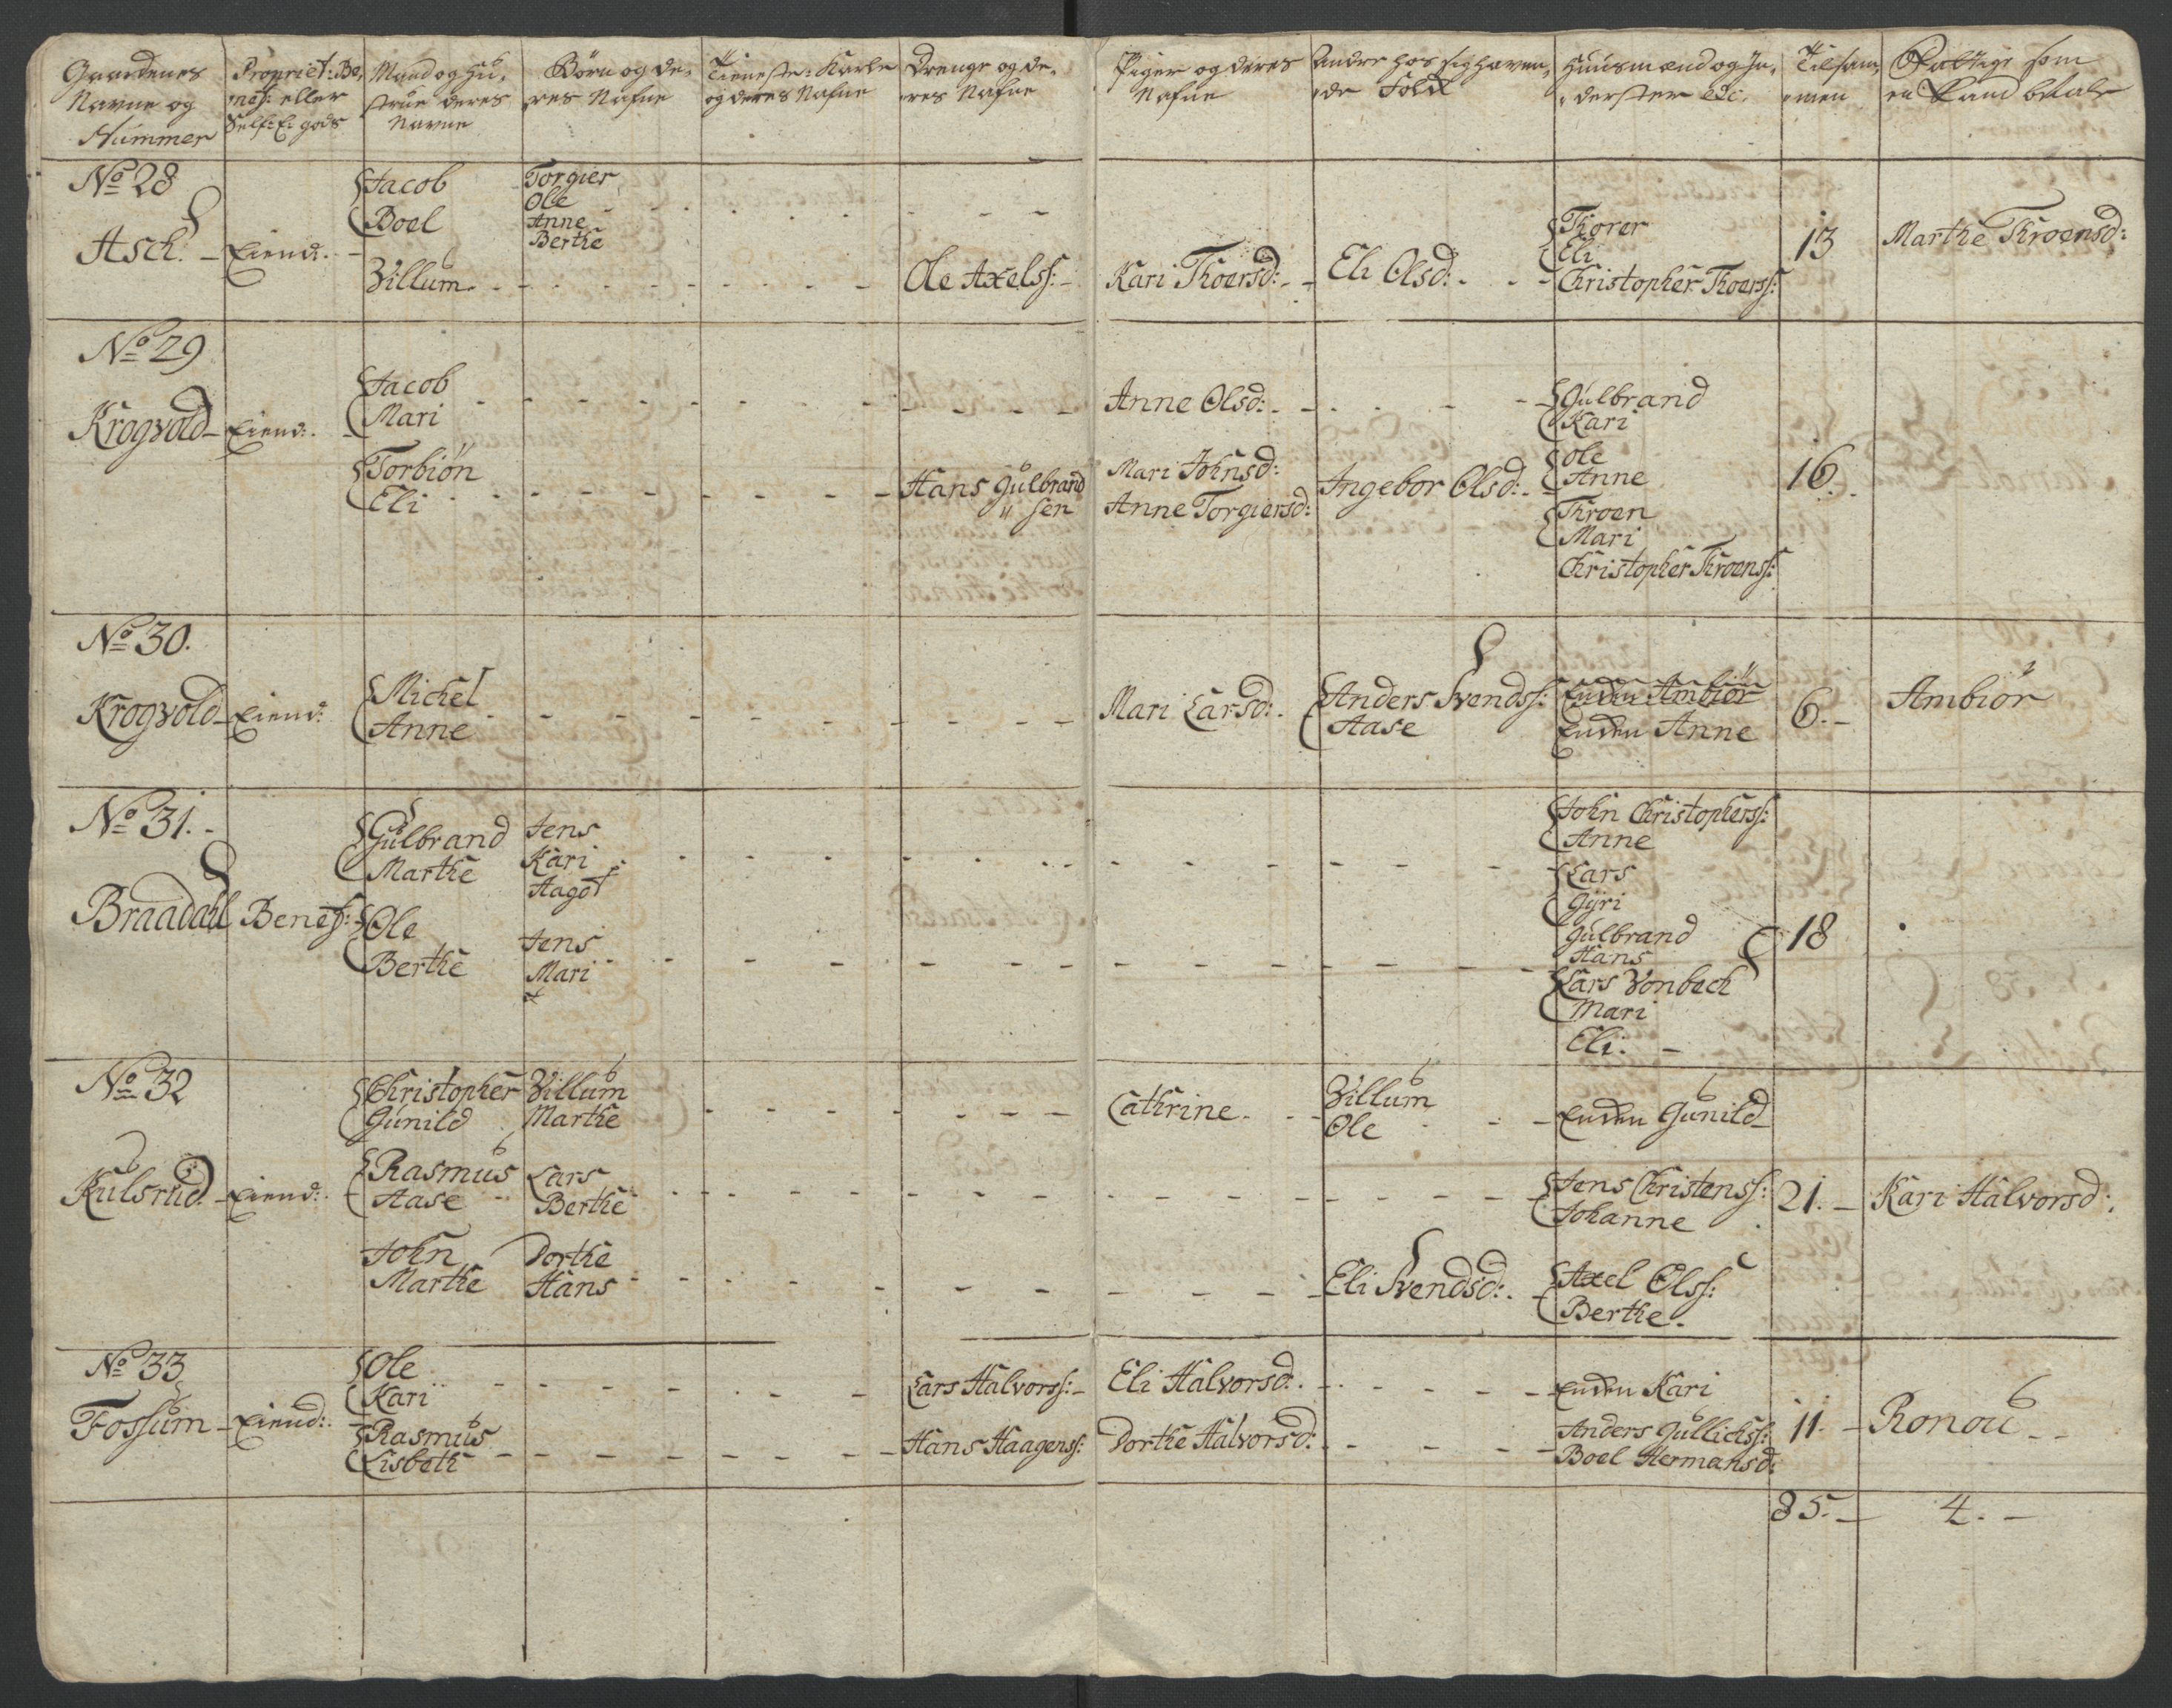 Gaardenes Navne og Nummer | Propriet: Be, nef: eller Self: E: gods | Mand og Hu, strue deres Navne | Börn og de, res Nafne | Tieneste: Karle og deres Nafne | Drenge og de, res Nafne | Piger og deres Nafne | Andre hos sig haven, de Folk | Huusmænd og In, derster | Tilsam, men | Fattige som en Mand betale
No 28
Asch. | Eiend:
Jacob
Boel
Villum
Torgier
Ole
Anne
Berthe
Ole Axelss:
Kari Thoersd:
Eli Olsd:
Thorer
Eli
Christopher Thoerss:
13
Marthe Throensd:
No 29
Krogvold | Eiend:
Jacob
Mari
Torbiön
Eli
Hans Gulbrand
sen
Anne Olsd:
Mari Johnsd:
Anne Torgiersd:
Ingebor Olsd:
Gulbrand
Kari
Ole
Anne
Throen
Mari
Christopher Throenss:
16.
No 30.
Krogvold | Eiend:
Michel
Anne
Mari Larsd:
Anders Svendss:
Aase
Enken Ambiör
Enken Anne
6.
Ambiör
No 31.
Braadahl | Benef:
Gulbrand
Marthe
Ole
Berthe
Jens
Kari
Aagot
Jens
Mari
John Christopherss:
Anne
Lars
Gÿri
Gulbrand
Hans
Lars Vonbech
Mari
Eli.
18
No 32
Kulsrud. | Eiend:
Christopher
Gunild
Rasmus
Aase
John
Marthe
Villum
Marthe
Lars
Berthe
Dorthe
Hans
Cathrine.
Villum
Ole
Eli Svendsd:
Enken Gunild
Jens Christenss:
Johanne
Axel Olss:
Berthe.
21.
Kari Halvorsd:
No 33
Fossum | Eiend:
Ole
Kari
Rasmus
Lisbeth
Lars Halvorss:
Hans Haagenss:
Eli Halvorsd:
Dorthe Halvorsd:
Enken Kari
Anders Gullichss:
Boel Hermansd:
11.
Ronou
85. | 4.